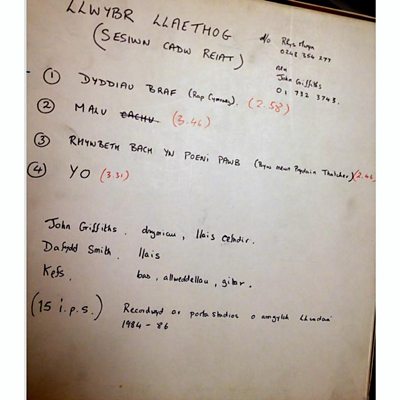 LLWYBR LLAETHOG
(SESIWN CADW REIAT)
d/o Rhys Mwyn
0248 354 277
neu
John Griffiths
01 732 3743.
① DYDDIAU BRAF (Rap Cymraeg). (2.58)
② MALU CACHU (3.46)
③ RHYWBETH BACH YN POENI PAWB (Byw mewn Prydain Thatcher) (2.46)
④ YO (3.31)
John Griffiths. drymiau, llais cefndir.
Dafydd Smith. llais
Kefs. bas, allweddellau, gitar.
(15 i.p.s.) Recordiwyd ar portastudios o amgylch Llundain
1984 - 86